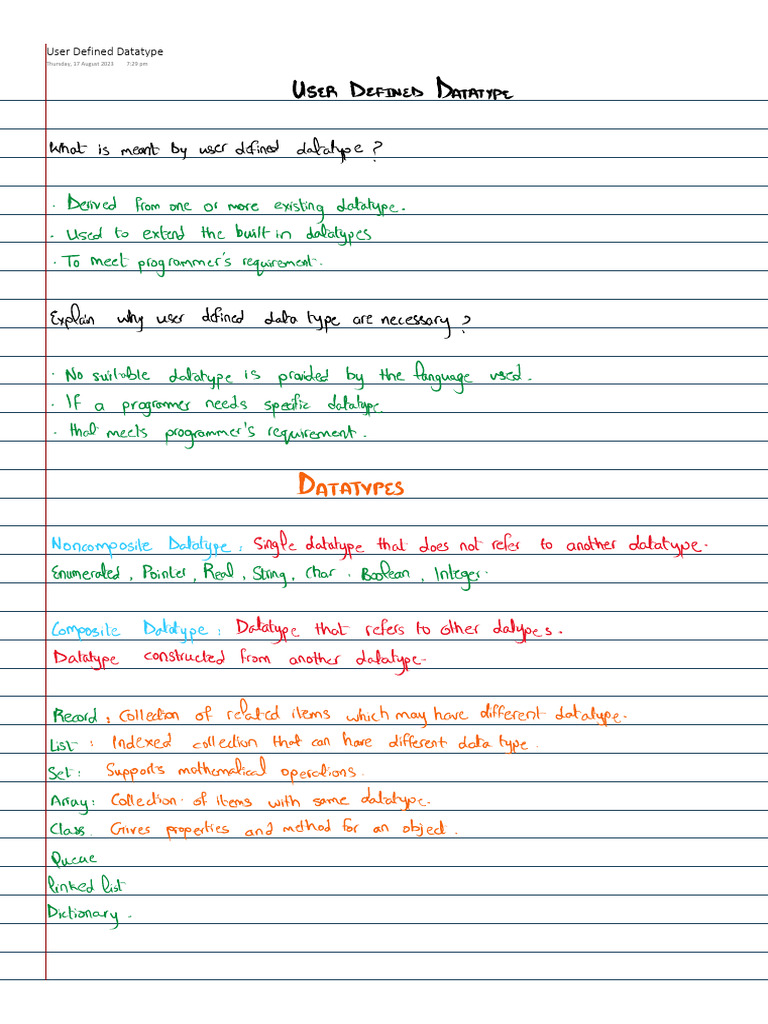 User Defined Datatype
Thursday, 17 August 2023 7:29 pm
USER DEFINED DATATYPE
What is meant by user defined datatype ?
. Derived from one or more existing datatype.
. Used to extend the built in datatypes
. To meet programmer's requirement.
Explain why user defined data type are necessary ?
. No suitable datatype is provided by the language used.
. If a programmer needs specific datatype.
. that meets programmer's requirement.
DATATYPES
Noncomposite Datatype : Single datatype that does not refer to another datatype.
Enumerated, Pointer, Real, String, Char. Boolean, Integer.
Composite Datatype : Datatype that refers to other datypes.
Datatype constructed from another datatype.
Record : Collection of related items which may have different datatype.
List : Indexed collection that can have different data type.
Set : Supports mathematical operations.
Array : Collection of items with same datatype.
Class. Gives properties and method for an object.
Queue
linked list
Dictionary.